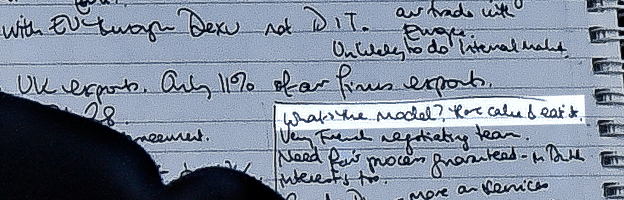 with EU through Dexu not DIT. our trade with
Europe.
Unlikely to do internal market.
UK exports. Only 11% of our firms exports.
What's the model? Have cake & eat it.
Very French negotiating team.
Need fair process guaranteed - in Dutch
interests too.
more on services